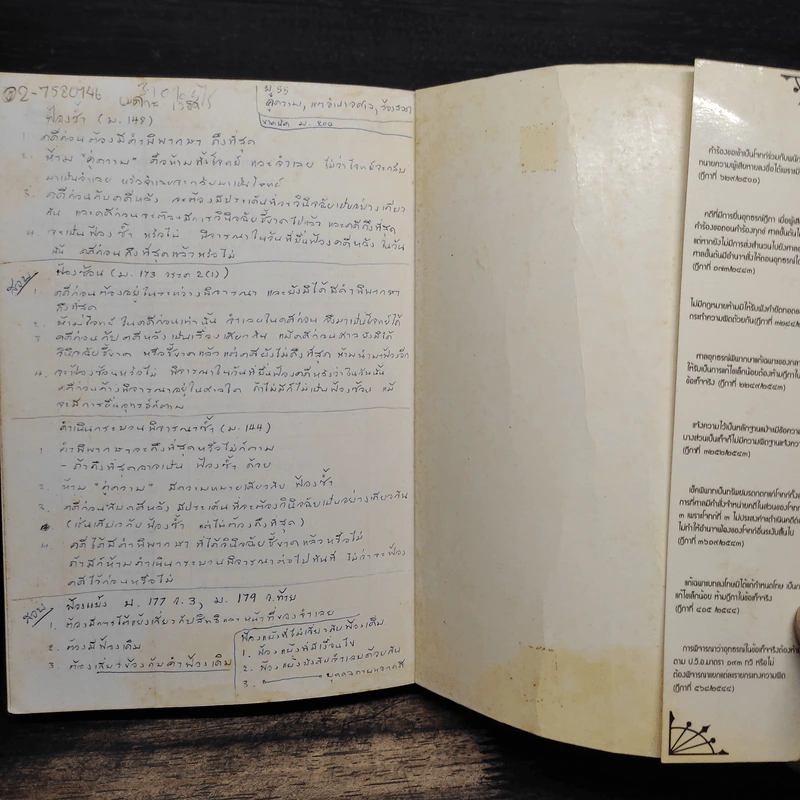 02-7580746
ม. 55
คู่ความ, เขตอำนาจศาล,
ฟ้องซ้ำ (ม. 148)
1. คดีก่อนต้องมีคำพิพากษา ถึงที่สุด
2. ห้าม "คู่ความ" คือห้ามทั้งโจทก์ และจำเลย ไม่ว่าโจทก์จะกลับ
มาเป็นจำเลย หรือจำเลยจะกลับมาเป็นโจทก์
3. คดีก่อนกับคดีหลัง จะต้องมีประเด็นที่จะวินิจฉัยเป็นอย่างเดียว
กัน และคดีก่อนจะต้องมีการวินิจฉัยชี้ขาดไปแล้ว และคดีถึงที่สุด
4. จะเป็นฟ้องซ้ำ หรือไม่ พิจารณาในวันที่ยื่นฟ้องคดีหลัง ในวัน
นั้น คดีก่อนถึงที่สุดแล้วหรือไม่
สอบ
ฟ้องซ้อน (ม. 173 วรรค 2(1)
1. คดีก่อนต้องอยู่ในระหว่างพิจารณา และยังมิได้มีคำพิพากษา
ถึงที่สุด
2. ห้ามโจทก์ ในคดีก่อนเท่านั้น จำเลยในคดีก่อน จึงมาเป็นโจทก์ได้
3. คดีก่อนกับคดีหลังเป็นเรื่องเดียวกัน แม้คดีก่อนศาลยังมิได้
วินิจฉัยชี้ขาด หรือชี้ขาดแล้วแต่คดียังไม่ถึงที่สุด ห้ามนำมาฟ้องอีก
4. จะฟ้องซ้อนหรือไม่ พิจารณาในวันที่ยื่นฟ้องคดีหลังว่าในวันนั้น
คดีก่อนค้างพิจารณาอยู่ในศาลใด ถ้าไม่มีก็ไม่เป็นฟ้องซ้อน แม้
จะมีการยื่นอุทธรณ์ก็ตาม
ดำเนินกระบวนพิจารณาซ้ำ (ม. 144)
1. คำพิพากษาจะถึงที่สุดหรือไม่ก็ตาม
- ถ้าถึงที่สุดอาจเป็น ฟ้องซ้ำ ด้วย
2. ห้าม "คู่ความ" มีความหมายเดียวกับ ฟ้องซ้ำ
3. คดีก่อนกับคดีหลัง มีประเด็นที่จะต้องวินิจฉัยเป็นอย่างเดียวกัน
(เช่นเดียวกับฟ้องซ้ำ แต่ไม่ต้องถึงที่สุด)
4. คดีได้มีคำพิพากษา ที่ได้วินิจฉัยชี้ขาดแล้วหรือไม่
ถ้ามีก็ห้ามดำเนินกระบวนพิจารณาต่อไปทันที ไม่ว่าจะฟ้อง
คดีไว้ก่อนหรือไม่
สอบ
ฟ้องแย้ง ม. 177 ว.3, ม. 179 ว.ท้าย
1. ต้องมีการโต้แย้งเกี่ยวกับสิทธิและหน้าที่ของจำเลย
2. ต้องมีฟ้องเดิม
3. ต้องเกี่ยวข้องกับคำฟ้องเดิม
ฟ้องแย้งที่ไม่เกี่ยวกับฟ้องเดิม
1. ฟ้องแย้งที่มีเงื่อนไข
2. ฟ้องแย้งบังคับจำเลยด้วยกัน
3. บุคคลภายนอกคดี
คำร้องขอเข้าเป็นโจทก์ร่วมกับพนัก
ทนายความผู้เสียหายลงชื่อได้เพราะมิ
(ฎีกาที่
คดีที่มีการยื่นอุทธรณ์ฎีกา เมื่อผู้เสีย
คำร้องขอถอนคำร้องทุกข์ ศาลชั้นต้นไ
แต่หากยังไม่มีการส่งสำนวนไปยังศาลอุ
ศาลชั้นต้นมีอำนาจสั่งให้ถอนอุทธรณ์ได้
(ฎีกาที่ ๑๗๓/๒๕๔๓)
ไม่มีกฎหมายห้ามมิให้รับฟังคำซัดทอด
กระทำความผิดด้วยกัน
ศาลอุทธรณ์พิพากษาแก้เฉพาะของกลา
ให้ริบเป็นการแก้ไขเล็กน้อยต้องห้ามฎีกาใ
ข้อเท็จจริง (ฎีกาที่ ๒๒๔๙/๒๕๔๓)
แจ้งความไว้เป็นหลักฐานแม้จะมีข้อความ
บางส่วนเป็นเท็จก็ไม่มีความผิดฐานแจ้งควา
(ฎีกาที่ ๓๒๕๒/๒๕๔๓)
เช็คพิพาทเป็นทรัพย์มรดกตกแก่โจทก์ทั้ง
การที่ศาลมีคำสั่งจำหน่ายคดีในส่วนของโจทก์
๓ เพราะโจทก์ที่ ๓ ไม่ประสงค์จะดำเนินคดีต่อ
ไม่ทำให้อำนาจฟ้องของโจทก์อื่นระงับสิ้นไป
(ฎีกาที่ ๓๖๑๙/๒๕๔๓)
แก้เฉพาะบทลงโทษมิได้แก้กำหนดโทษ เป็นก
แก้ไขเล็กน้อย ห้ามฎีกาในข้อเท็จจริง
(ฎีกาที่ ๔๑๕/๒๕๔๔)
การพิจารณาว่าอุทธรณ์ในข้อเท็จจริงต้องห้า
ตาม ป.วิ.อ.มาตรา ๑๙๓ ทวิ หรือไม่
ต้องพิจารณาแยกแต่ละรายกระทงความผิด
(ฎีกาที่ ๕๖๘/๒๕๔๔)